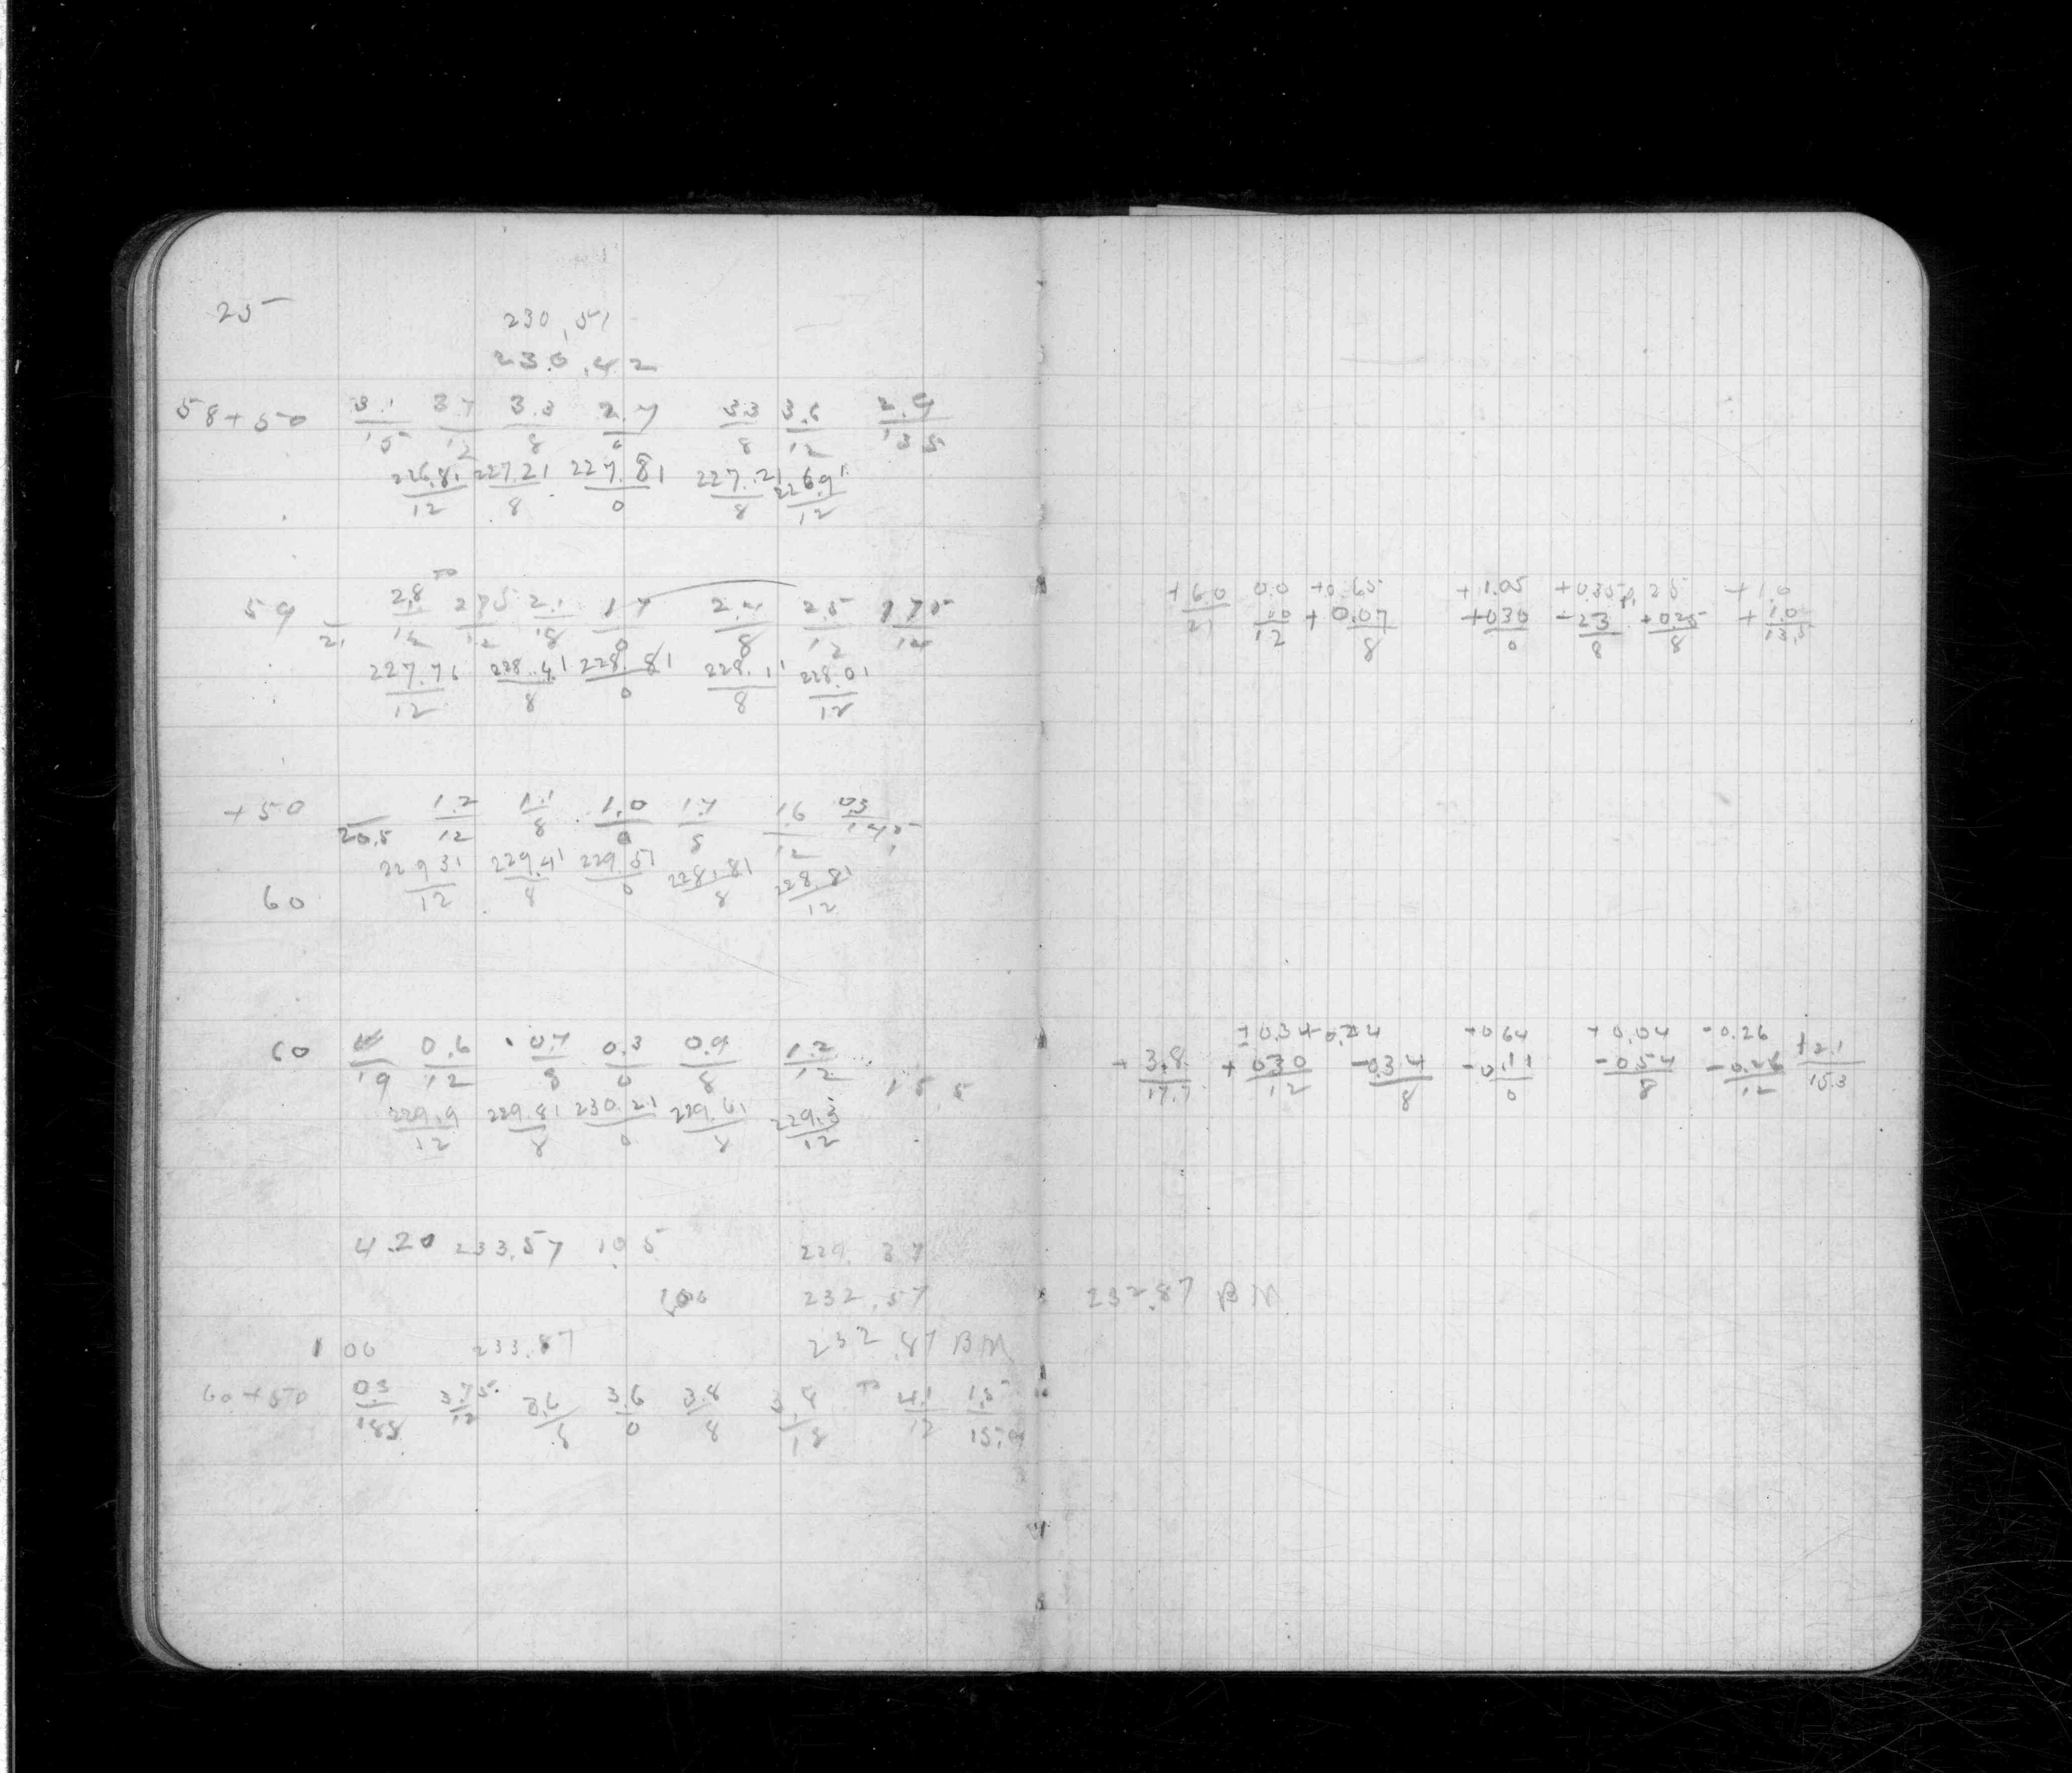 25
230.51
230.42
58+50 3.1/15 3.7/12 3.3/8 2.7/0 3.3/8 3.6/12 2.9/13.5
226.81/12 227.21/8 227.81/0 227.21/8 226.91/12
59 /21 2.8/12 TO 2.75/12 2.1/18 1.7/0 2.4/8 2.5/12 1.75/12
227.76/12 228.41/8 228.81/0 228.11/8 228.01/12
+50 /20.5 1.2/12 1.1/8 1.0/0 1.7/8 1.6/12 0.3/14.5
229.31/12 229.41/8 229.51/0 228.81/8 228.81/12
60
60 /19 0.6/12 0.7/8 0.3/0 0.9/8 1.2/12 15.5
229.9/12 229.81/8 230.21/0 229.61/8 229.3/12
4.20 233.57 10.5 229.37
1.00 232.57
1.00 233.87 232.87 BM
60+50 0.3/18.8 3.75/12 3.6/8 3.6/0 3.8/8 3.8/18 TO 4.1/12 1.5/15.0
+6.0/21 0.0 +0.65 +1.05 +0.35 0.25 +1.0
0.0/12 +0.07/8 +0.30/0 -23/8 +0.25/8 +1.0/13.5
+0.34 -0.24 +0.64 +0.04 -0.26 +2.1/15.3
+3.8/17.7 +0.30/12 -0.34/8 -0.11/0 -0.54/8 -0.26/12
232.87 BM